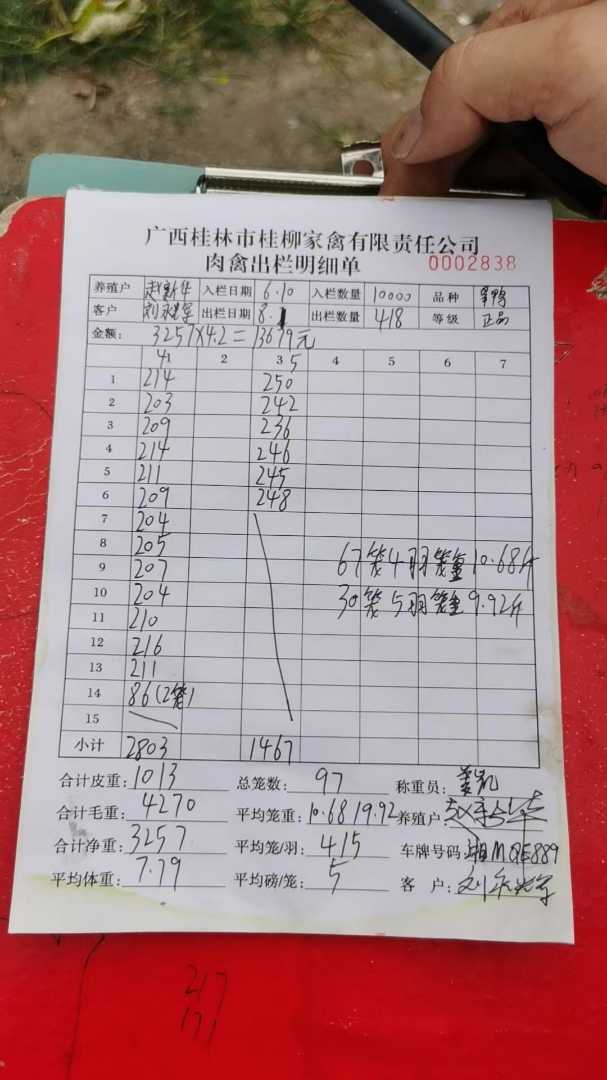 广西桂林市桂柳家禽有限责任公司
肉禽出栏明细单 0002838
养殖户 赵新华 入栏日期 6.10 入栏数量 10000 品种
客户 出栏日期 8.1 出栏数量 418 等级 正品
金额: 3257×4.2=13679元
41 2 3 5 4 5 6 7
1 214 250
2 203 242
3 209 236
4 214 246
5 211 245
6 209 248
7 204
8 205
9 207 67笼4羽笼重10.68斤
10 204 30笼5羽笼重9.92斤
11 210
12 216
13 211
14 86(2笼)
15
小计 2803 1467
合计皮重: 1013 总笼数: 97 称重员:
合计毛重: 4270 平均笼重: 10.68 19.92 养殖户
合计净重: 3257 平均笼/羽: 415 车牌号码: 湘MQE889
平均体重: 7.79 平均磅/笼: 5 客 户:
217
171